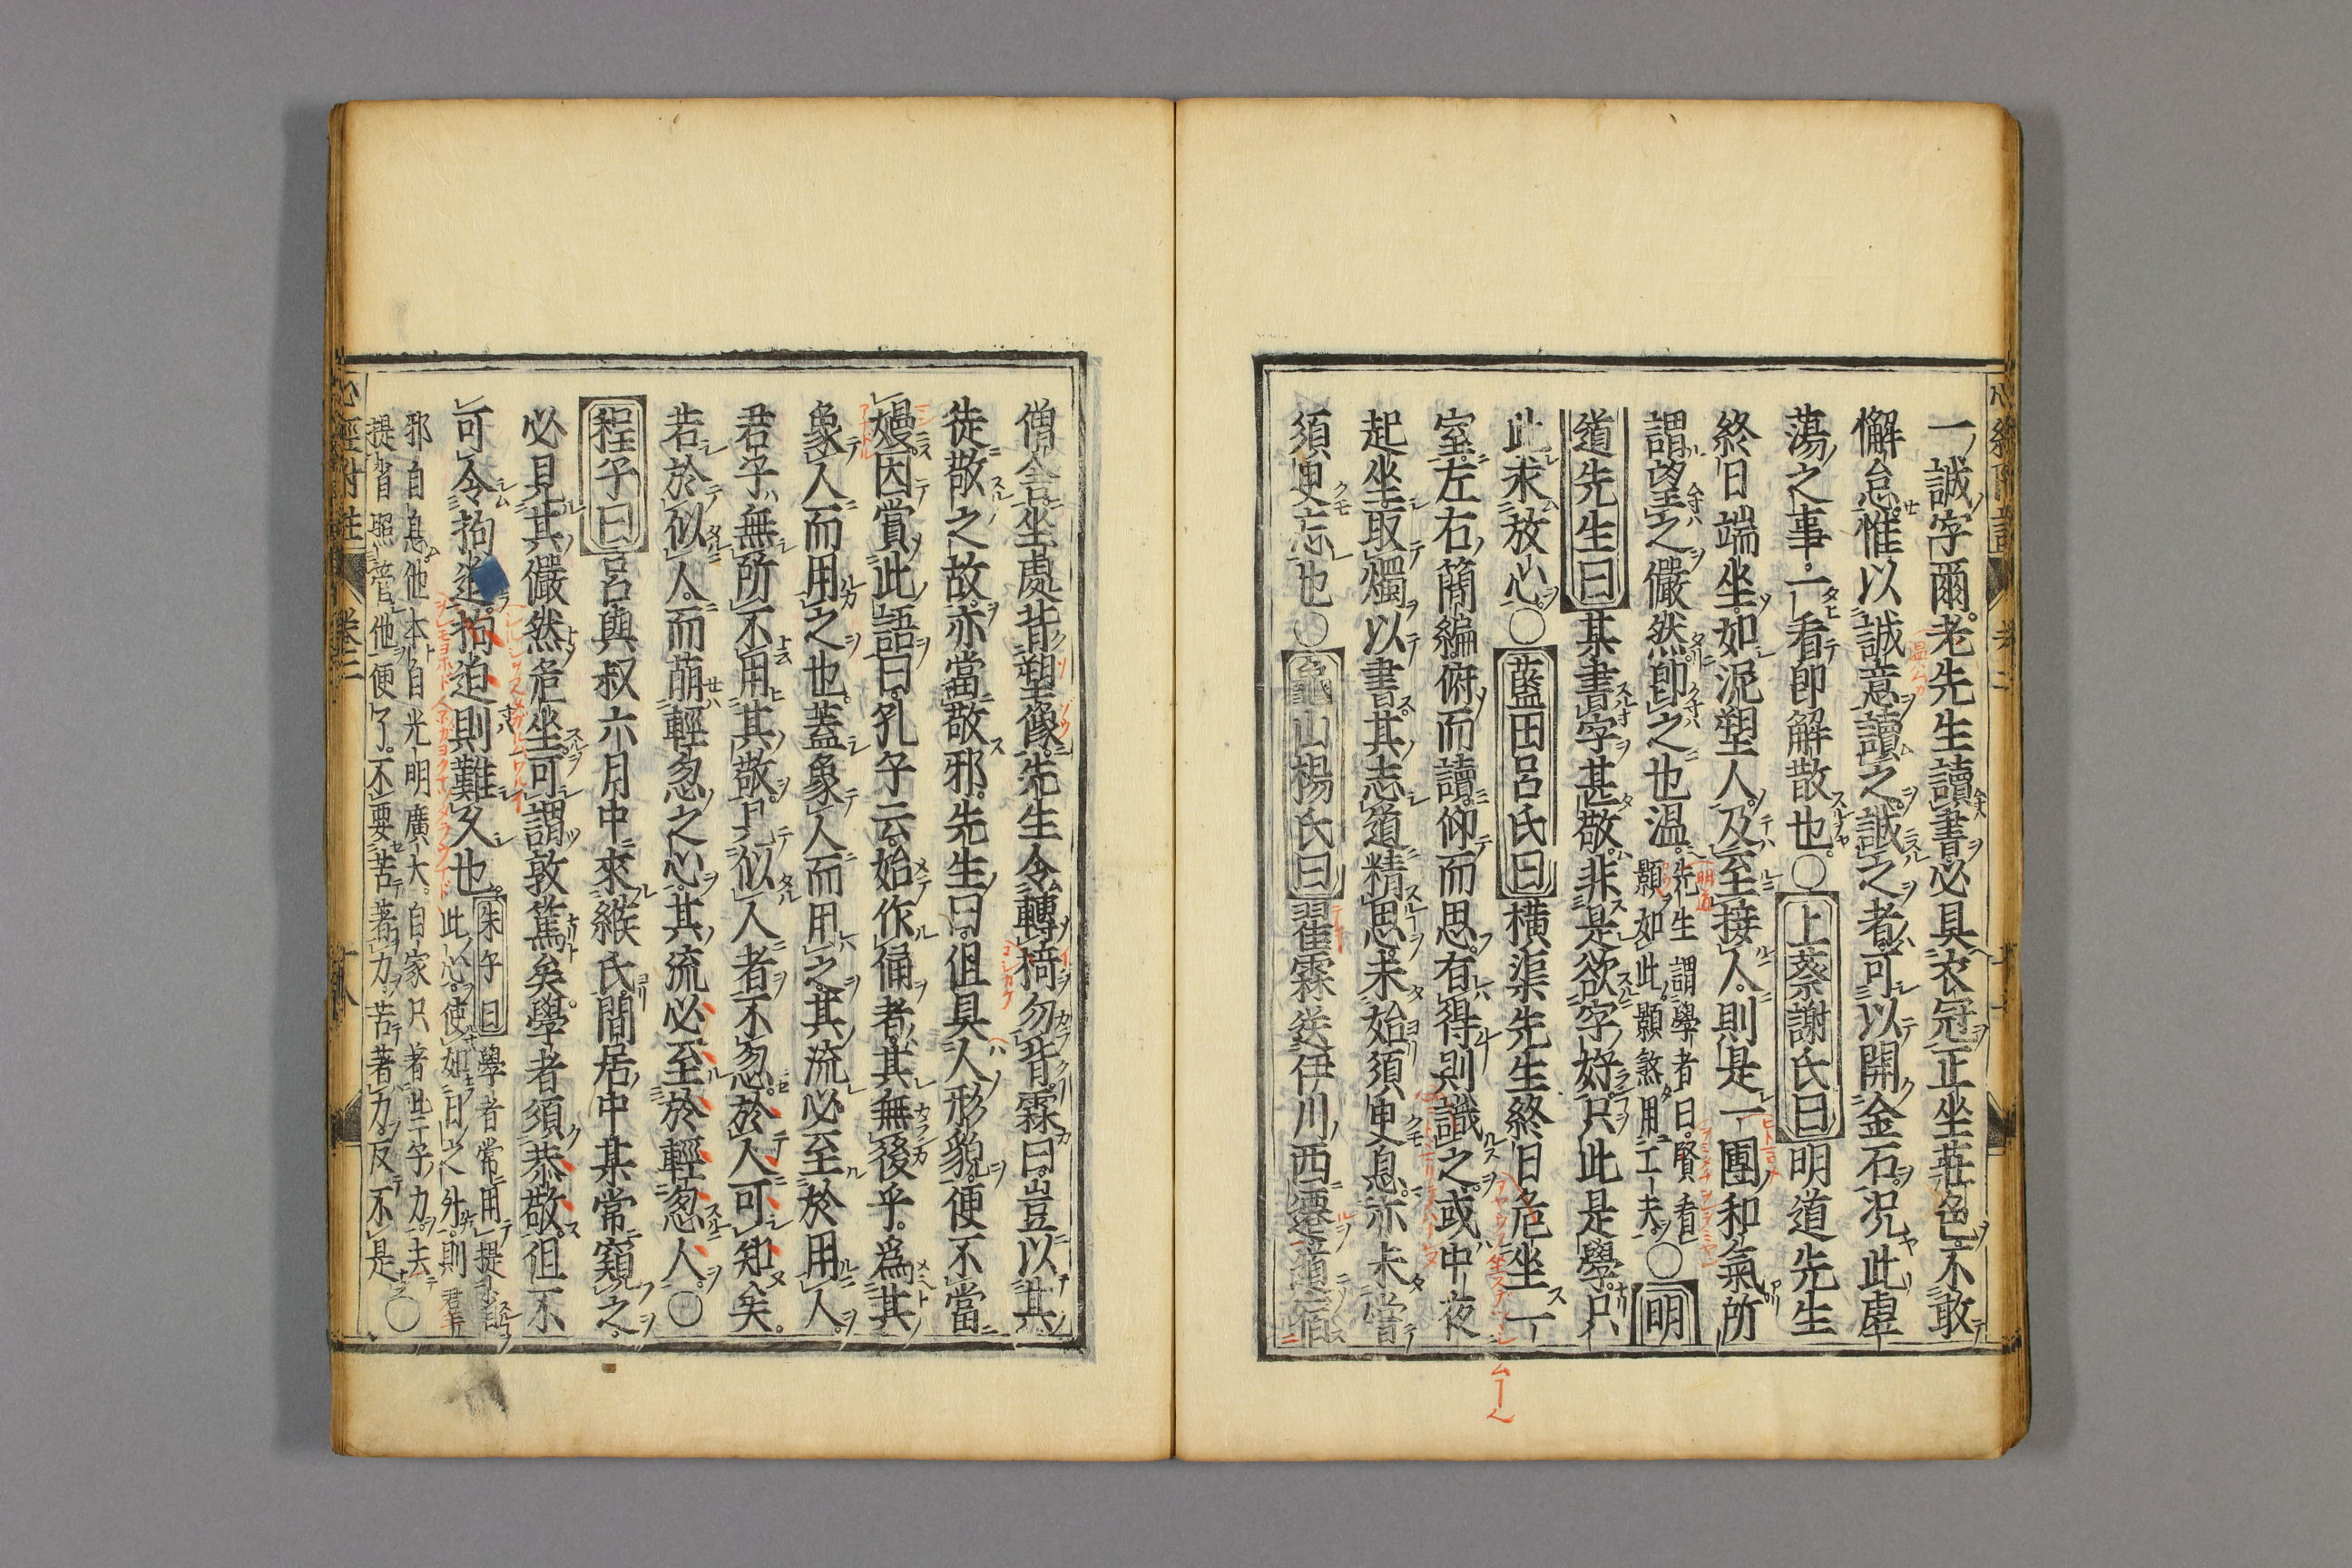 一誠字爾老先生讀書必具衣冠正坐莊色不敢
懈怠惟以誠意讀之誠之者可以開金石況此虛
蕩之事一看卽解散也○上蔡謝氏曰明道先生
終日端坐如泥塑人及至接人則是一團和氣所
謂望之儼然卽之也温先生謂學者曰賢看
顥如此顥煞用工夫○明
道先生曰某書字甚敬非是欲字好只此是學只
此求放心○藍田呂氏曰橫渠先生終日危坐一
室左右簡編俯而讀仰而思有得則識之或中夜
起坐取燭以書其志道精思未始須臾息亦未嘗
須臾忘也○龜山楊氏曰翟霖送伊川西遷道宿
僧舍坐處背塑像先生令轉椅勿背霖曰豈以其
徒敬之故亦當敬邪先生曰但具人形貌便不當
嫚因賞此語曰孔子云始作俑者其無後乎爲其
象人而用之也蓋象人而用之其流必至於用人
君子無所不用其敬見似人者不忽於人可知矣
若於似人而萌輕忽之心其流必至於輕忽人○
程子曰呂與叔六月中來緱氏間居中某常窺之
必見其儼然危坐可謂敦篤矣學者須恭敬但不
可令拘迫拘迫則難久也朱子曰學者常用提省
此心使如日之升則
邪自息他本自光明廣大自家只著些子力去
提省照管他便了不要苦著力苦著力反不是○
心經附註 卷二 十八